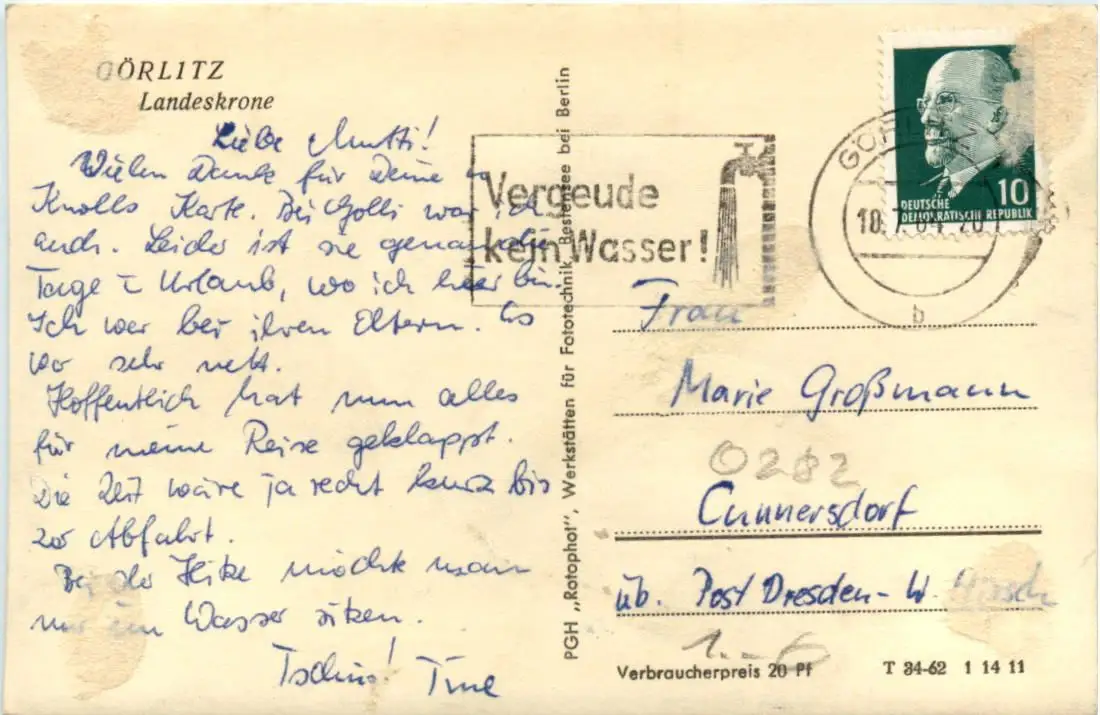 GÖRLITZ
Landeskrone
Liebe Mutti!
Vielen Dank für Deine u.
Knolls Karte. Bei Golli war ich
auch. Leider ist sie genau die
Tage i. Urlaub, wo ich hier bin.
Ich war bei ihren Eltern. Es
war sehr nett.
Hoffentlich hat nun alles
für meine Reise geklappt.
Die Zeit wäre ja recht kurz bis
zur Abfahrt.
Bei der Hitze möchte man
nur im Wasser sitzen.
Tschüs! Tine
PGH „Rotophot", Werkstätten für Fototechnik, Bestensee bei Berlin
Vergeude
kein Wasser!
GÖRL
18.7.64-20
b
10
DEUTSCHE
DEMOKRATISCHE REPUBLIK
Frau
Marie Großmann
0282
Cunnersdorf
üb. Post Dresden - W.
1.-6
Verbraucherpreis 20 Pf
T 34-62 1 14 11